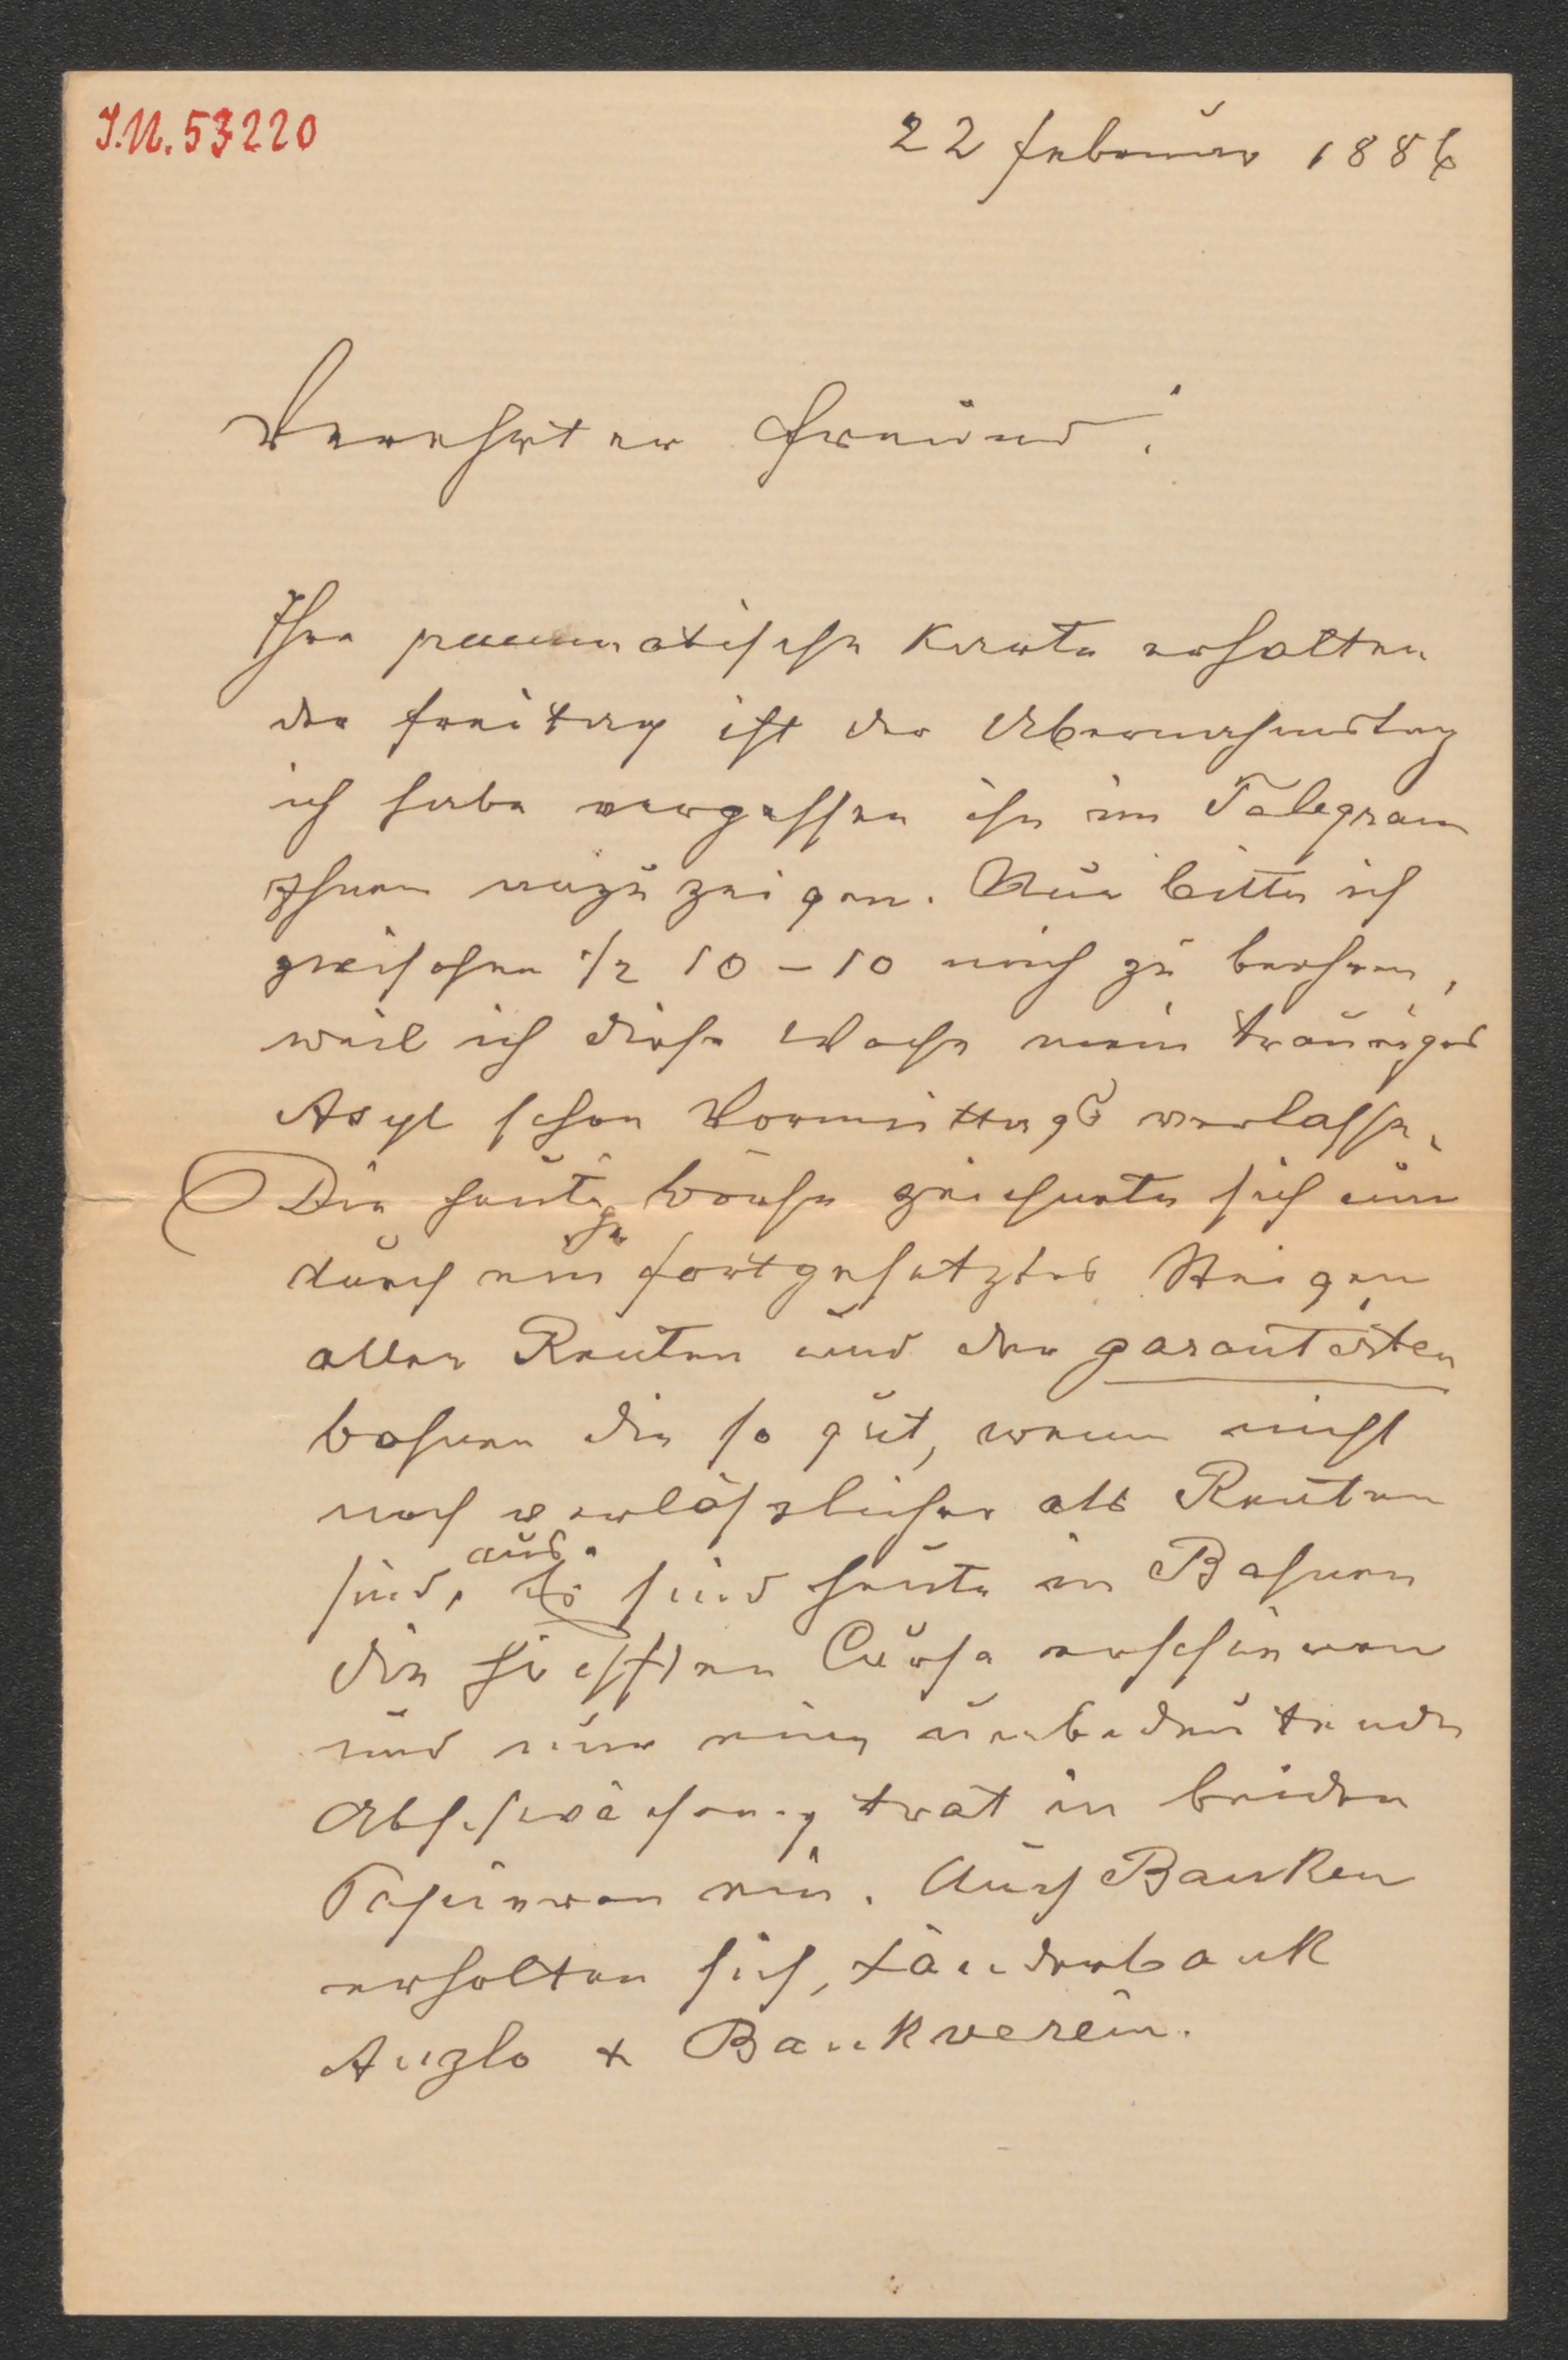 J.N. 53220
22 Februar 1886
Verehrter Freund!
Ihre pneumatische Karte erhalten
der Freitag ist der Übernahmstag
ich habe vergessen ihn im Telegram
Ihnen anzuzeigen. Nur bitte ich
zwischen 1/2 10 – 10 mich zu beehren,
weil ich diese Woche mein trauriges
Asyl schon Vormittags verlasse.
Die heutige Börse zeichnete sich
durch ein fortgesetztes Steigen
aller Renten und der garantirten
Bahnen die so gut, wenn nicht
noch verläßlicher als Renten
sind, aus. Es sind heute in Bahnen
die höchsten Curse erschienen
und nur eine unbedeutende
Abschwächung trat in beiden
Papieren ein. Auch Banken
erholten sich, Länderbank
Anglo & Bankverein.